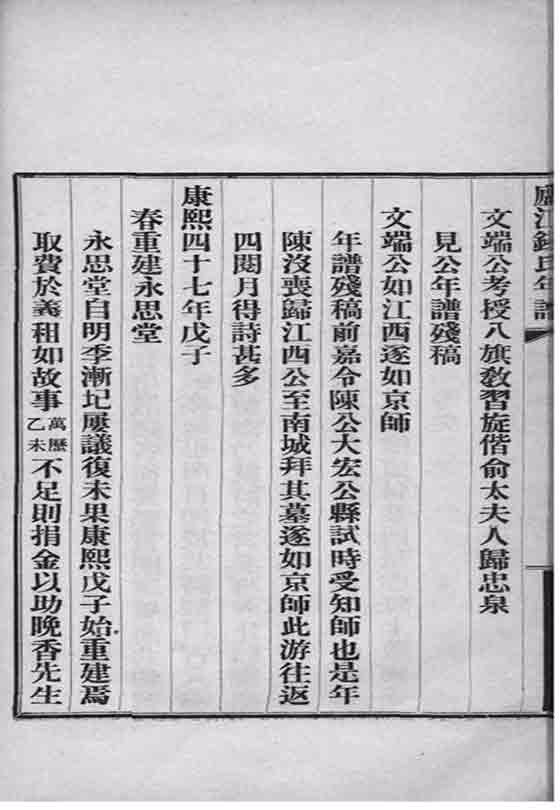 廬江錢氏年譜
文端公考授八旗敎習旋偕俞太夫人歸忠泉
見公年譜殘稿
文端公如江西遂如京師
年譜殘稿前嘉令陳公大宏公縣試時受知師也是年
陳沒喪歸江西公至南城拜其墓遂如京師此游往返
四閱月得詩甚多
康熙四十七年戊子
春重建永思堂
永思堂自明季漸圮屢議復未果康熙戊子始重建焉
取費於義租如故事萬歷乙未不足則捐金以助晚香先生